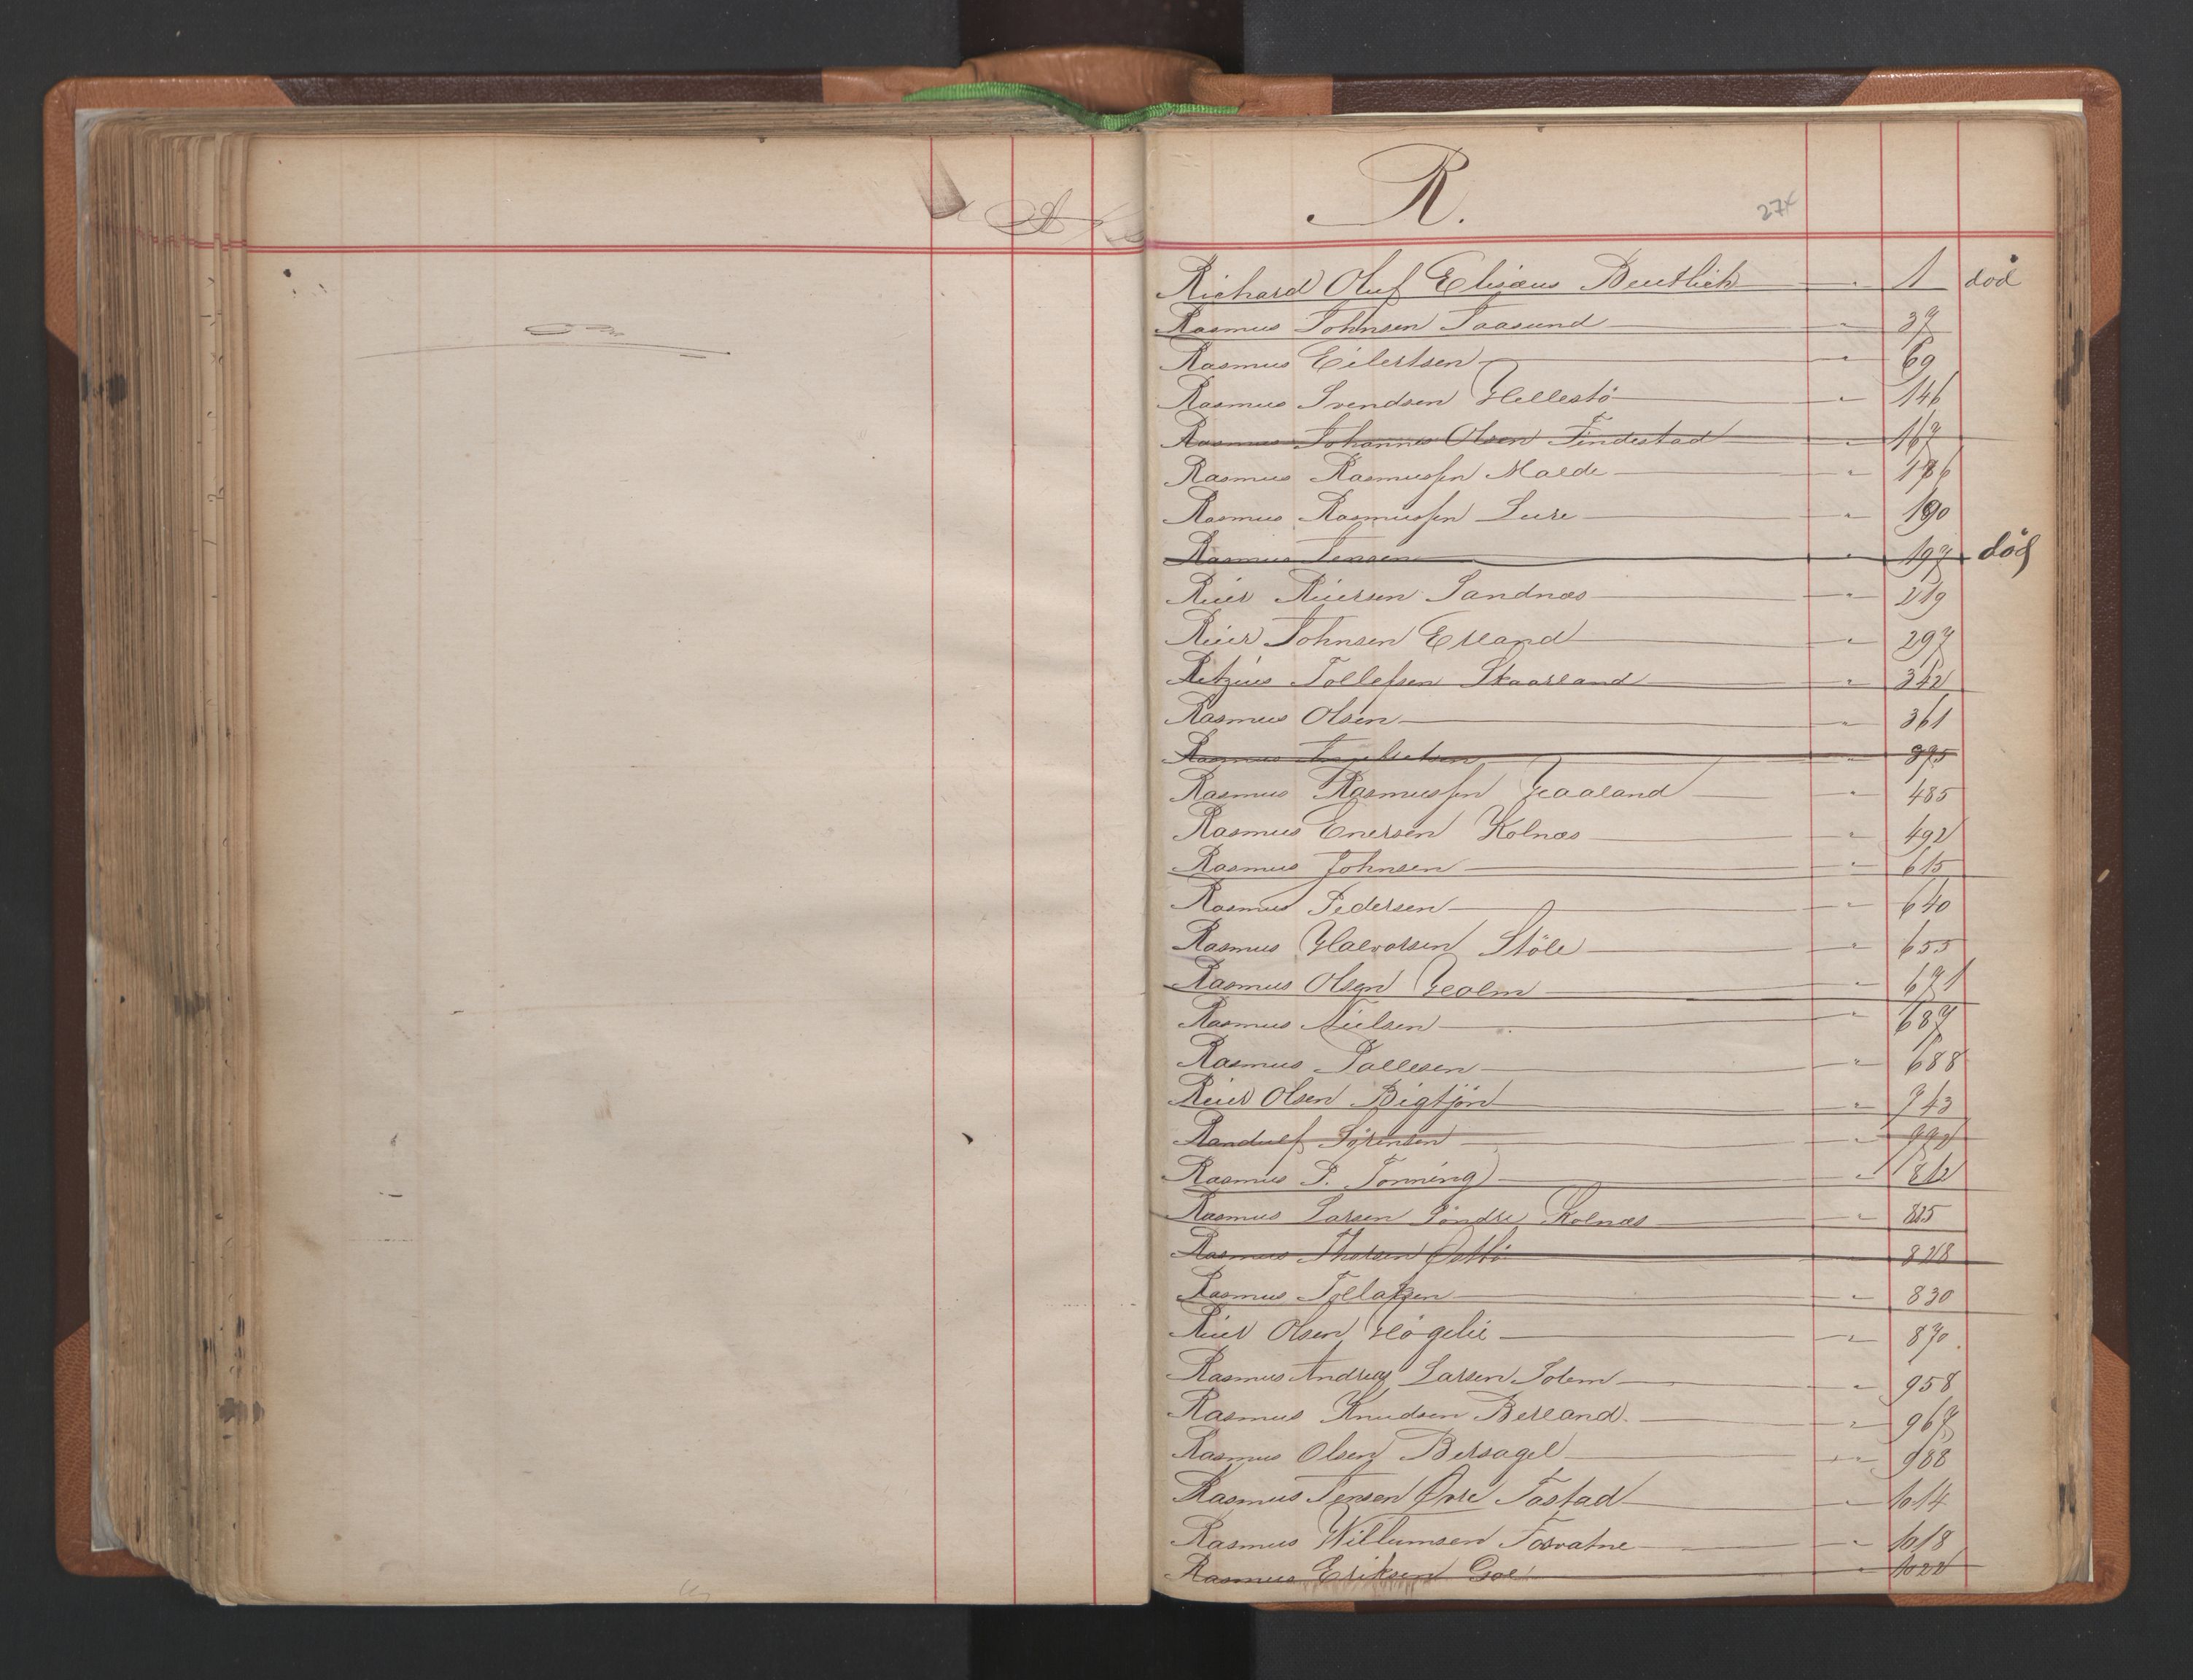 R.
274
Richard Oluf Elisæus Deutlich " 1 død
Rasmus Johnsen Taasund " 37
Rasmus Eilertsen " 69
Rasmus Svendsen Hellestö " 146
Rasmus Johannes Olsen Findestad " 167
Rasmus Rasmussen Malde " 186
Rasmus Rasmussen Lure " 190
Rasmus Jensen " 197 död
Reier Reiersen Sandnæs " 219
Reier Johnsen Erland " 297
Retzius Tollefsen Skaarland " 342
Rasmus Olsen " 361
Rasmus " 375
Rasmus Rasmussen Haaland " 485
Rasmus Enersen Kolnæs " 492
Rasmus Johnsen " 615
Rasmus Pedersen " 640
Rasmus Halvorsen Stöle " 655
Rasmus Olsen Holm " 671
Rasmus Nielsen " 687
Rasmus Tollesen " 688
Reier Olsen Bigtjön " 743
Randulf Sörensen " 772
Rasmus P. Tonning " 812
Rasmus Larsen Söndre Kolnæs " 815
Rasmus Thorsen " 828
Rasmus Tollaksen " 830
Reier Olsen Högelie " 870
Rasmus Andreas Larsen Solem " 958
Rasmus Knudsen Berland. " 967
Rasmus Olsen Bersagel " 988
Rasmus Jensen Övre Tastad " 1014
Rasmus Willumsen Fosvatne " 1018
Rasmus Eriksen Goe " 1022